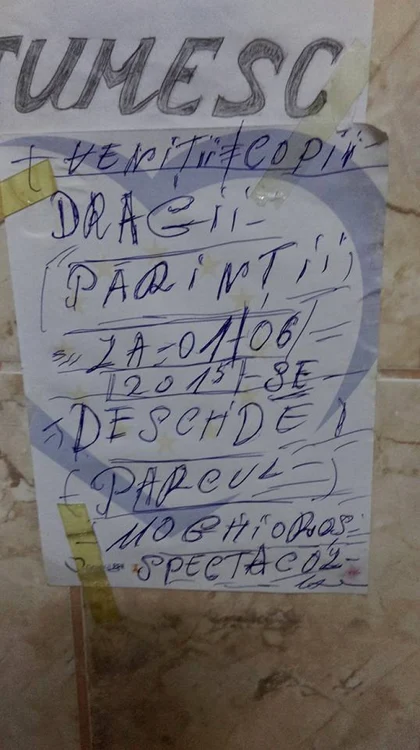 TUMESC
+ VENITii ≠ COPiii
DRAGii-
(PARiNTiii)
"LA-01/06/=
/2015/-SE
DESCHDE)
(PARCUL-)
MOGHiOROS=
- SPECTACOL-